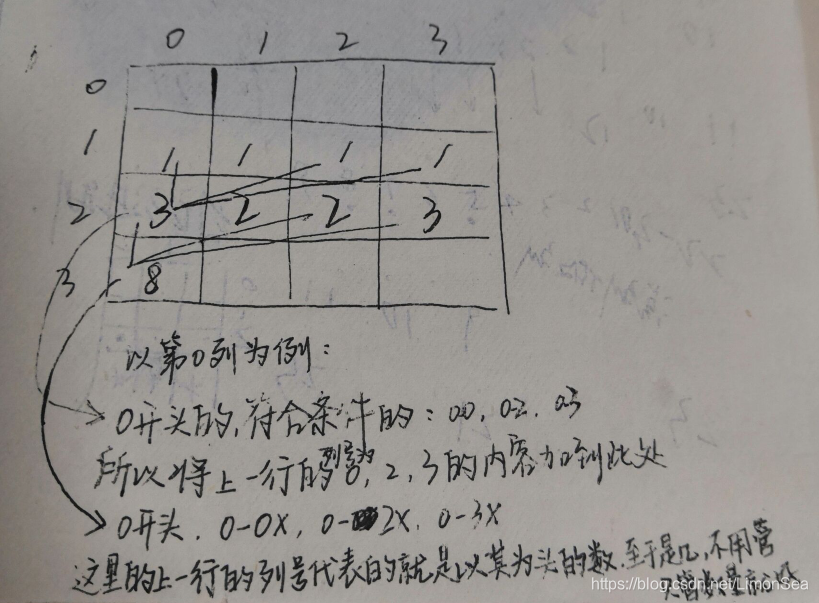 0 1 2 3
0
1 1 1 1 1
2 3 2 2 3
3 8
以第0列为例：
0开头的，符合条件的：00，02，03
列号为
所以将上一行的0，2，3的内容加到此处
0开头．0-0X，0-2X，0-3X
这里的上一行的列号代表的就是以其为头的数．至于是几，不用管
https://blog.csdn.net/LimonSea